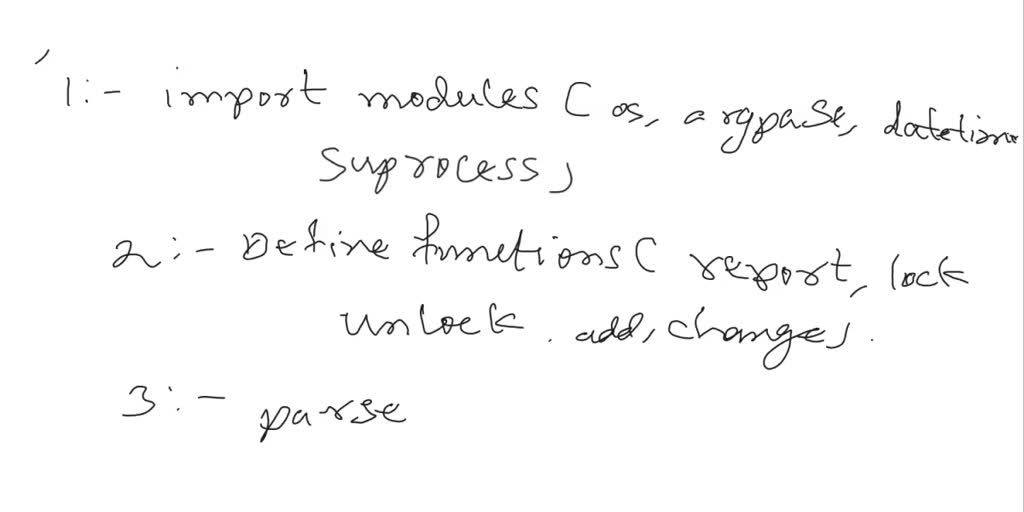 1:- import modules ( os, argpase, datetime
suprocess)
2:- Define functions ( report, lock
unlock. add, change).
3:- parse